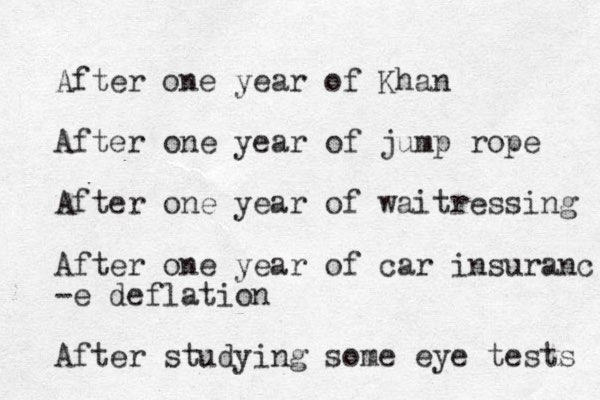 After one year of Khan
After one year of jump rope
After one year of waitressing
After one year of car insuranc
-e deflation
After studying some eye tests